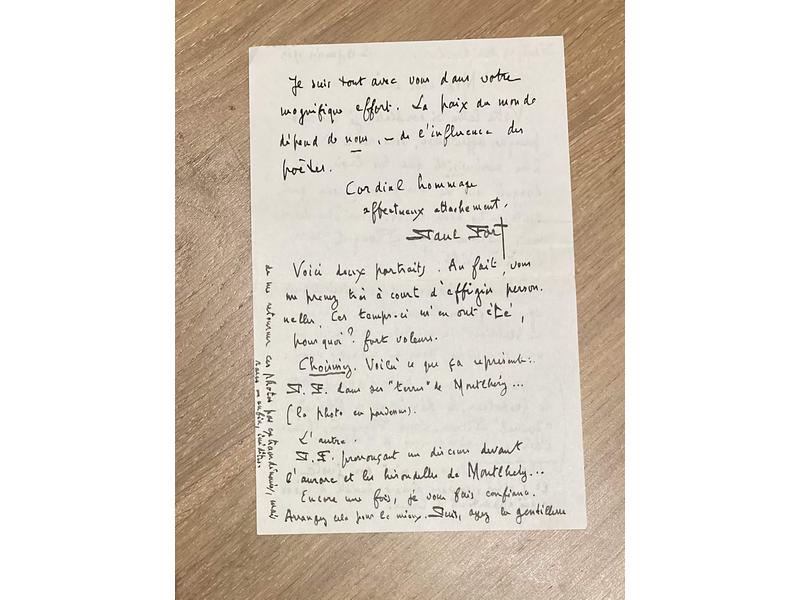 Je suis tout avec vous dans votre
magnifique effort. La paix du monde
dépend de nous, — de l'influence des
poètes.
Cordial hommage
affectueux attachement.
Paul Fort
Voici deux portraits. Au fait, vous
me prenez très à court d'effigies person-
nelles. Ces temps-ci m'en ont été,
pourquoi? fort voleurs.
Choisissez. Voilà ce que ça représente:
P. F. dans ses "terres" de Montlhéry...
(la photo en pardessus).
L'autre.
P. F. prononçant un discours devant
l'aurore et les hirondelles de Montlhéry...
Encore une fois, je vous fais confiance.
Arrangez cela pour le mieux. Puis, ayez la gentillesse
de me retourner ces photos pas extraordinaires, mais
rares enfin, inédites.